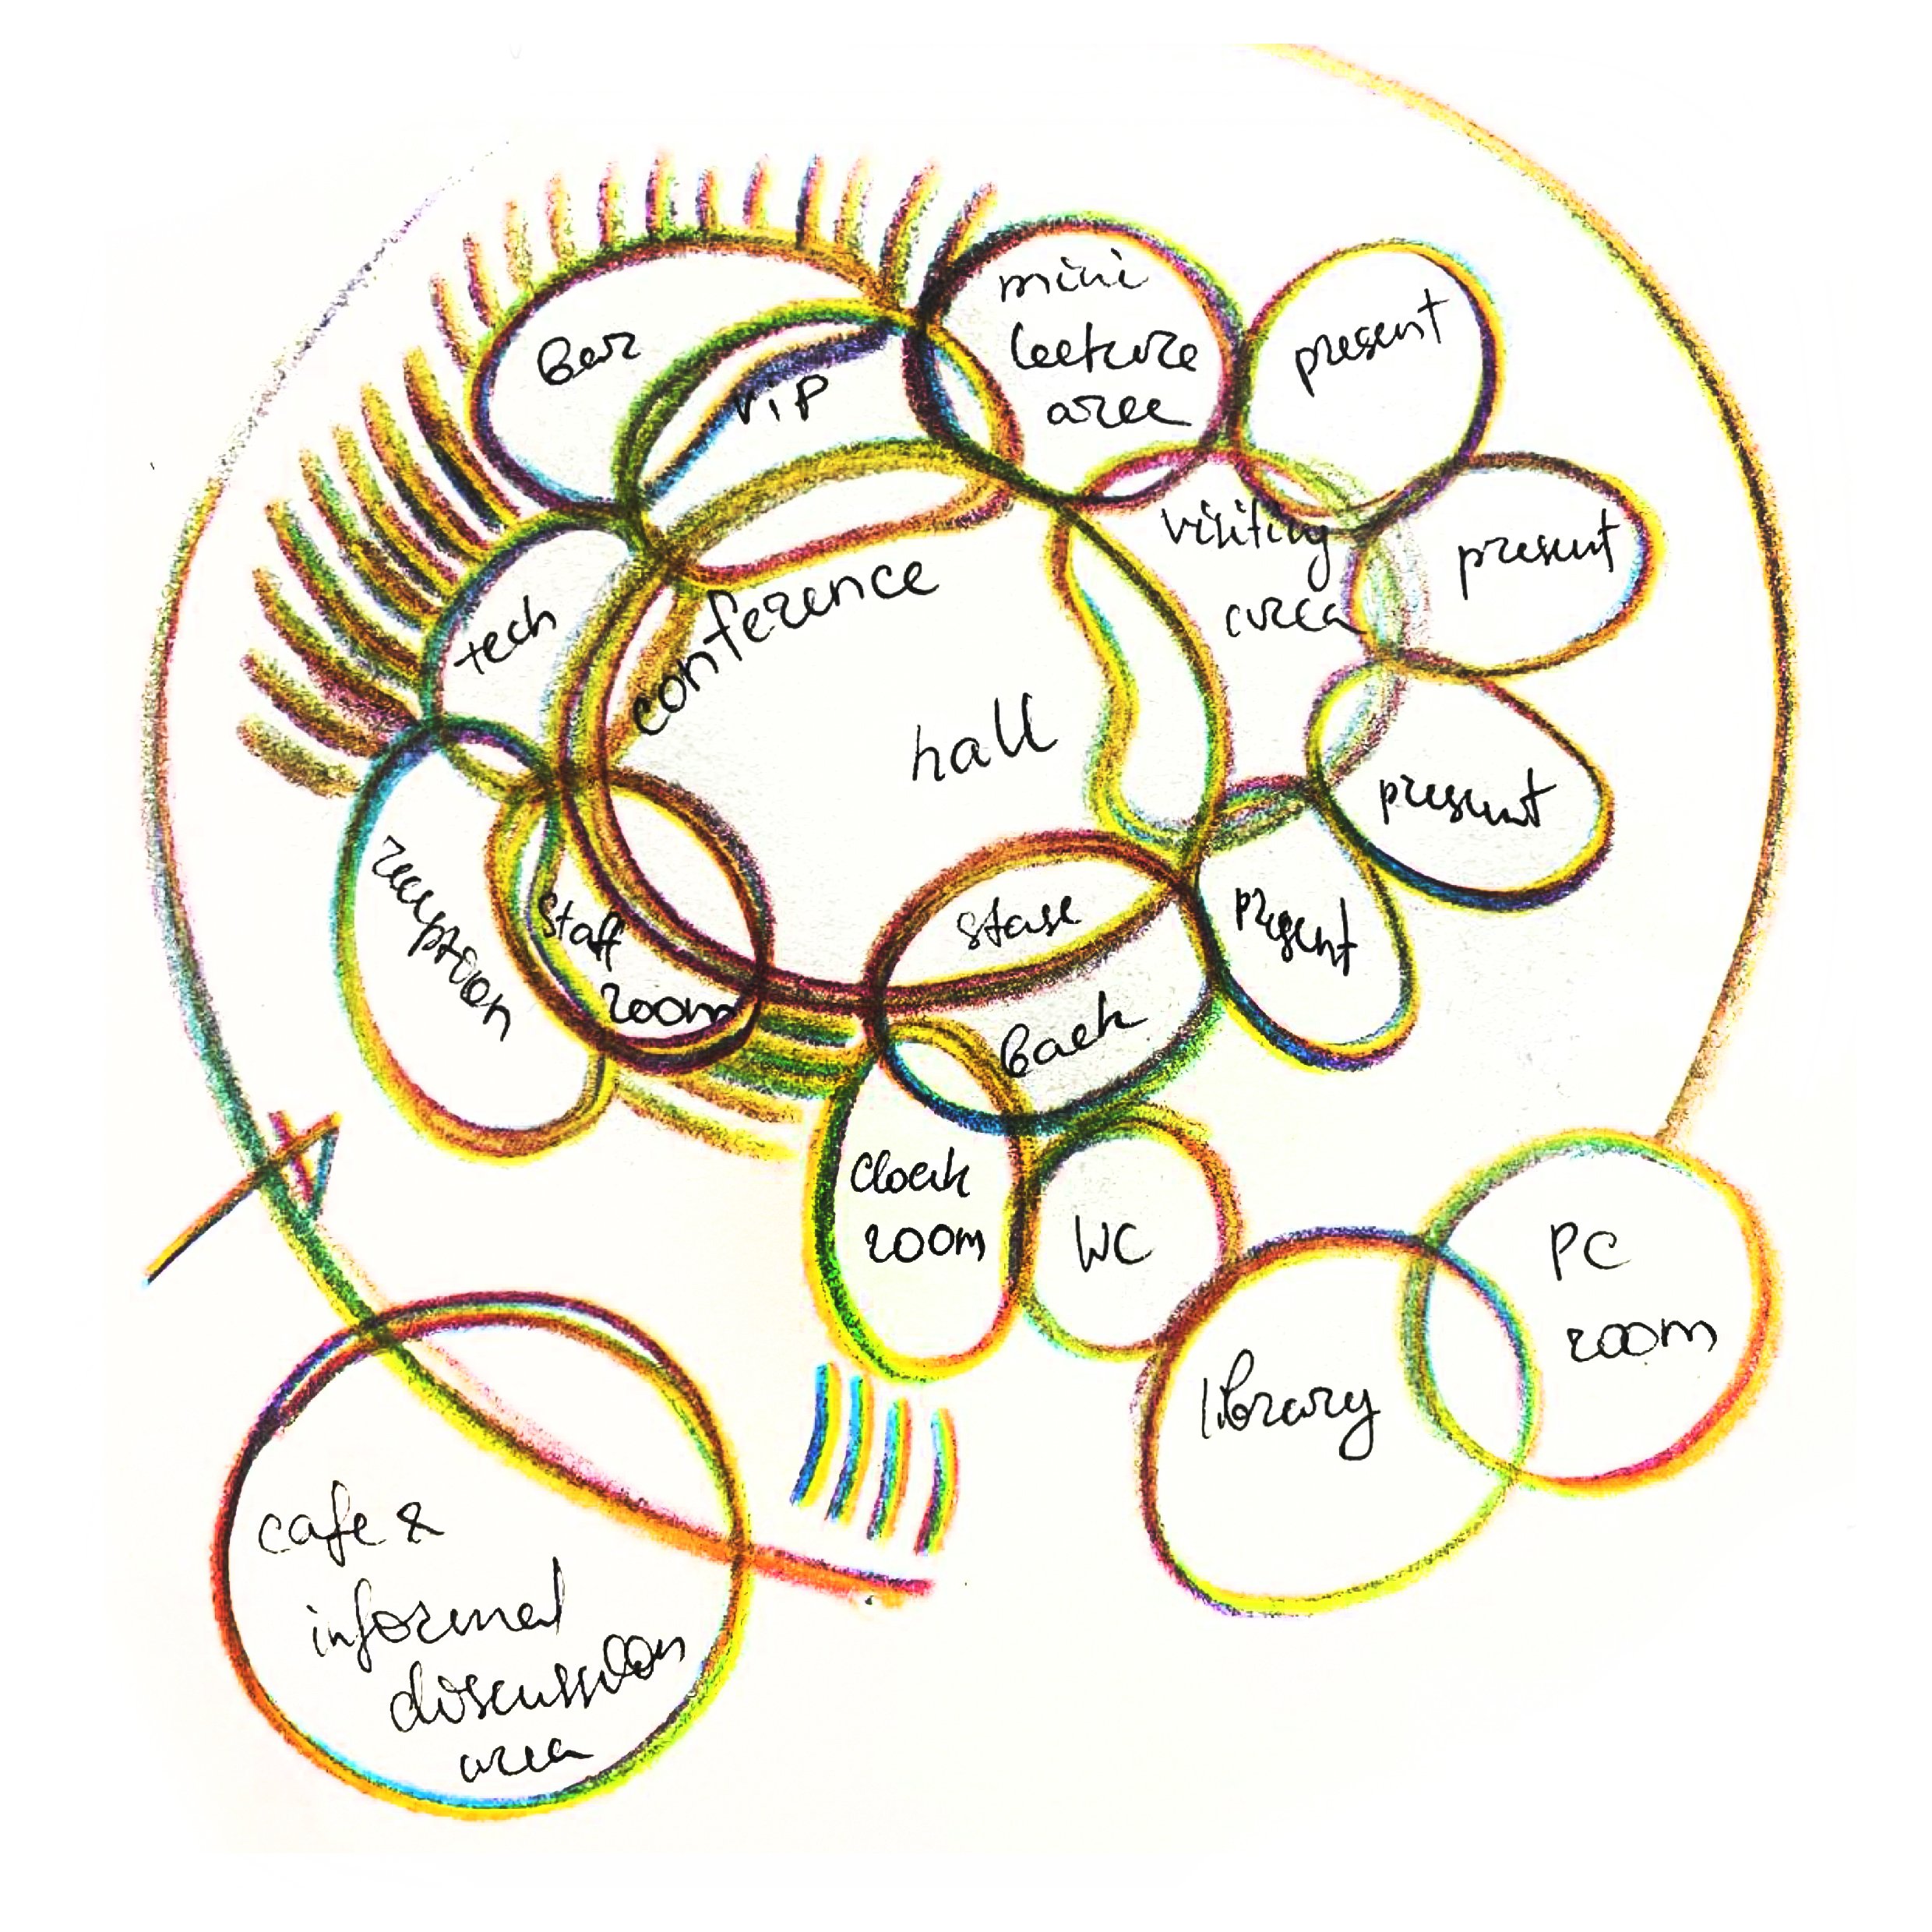 Bar
viP
mini
lecture
area
present
present
visiting
area
present
present
conference
hall
tech
reception
staff
room
back
cloak
room
WC
library
PC
room
cafe &
informal
discussion
area